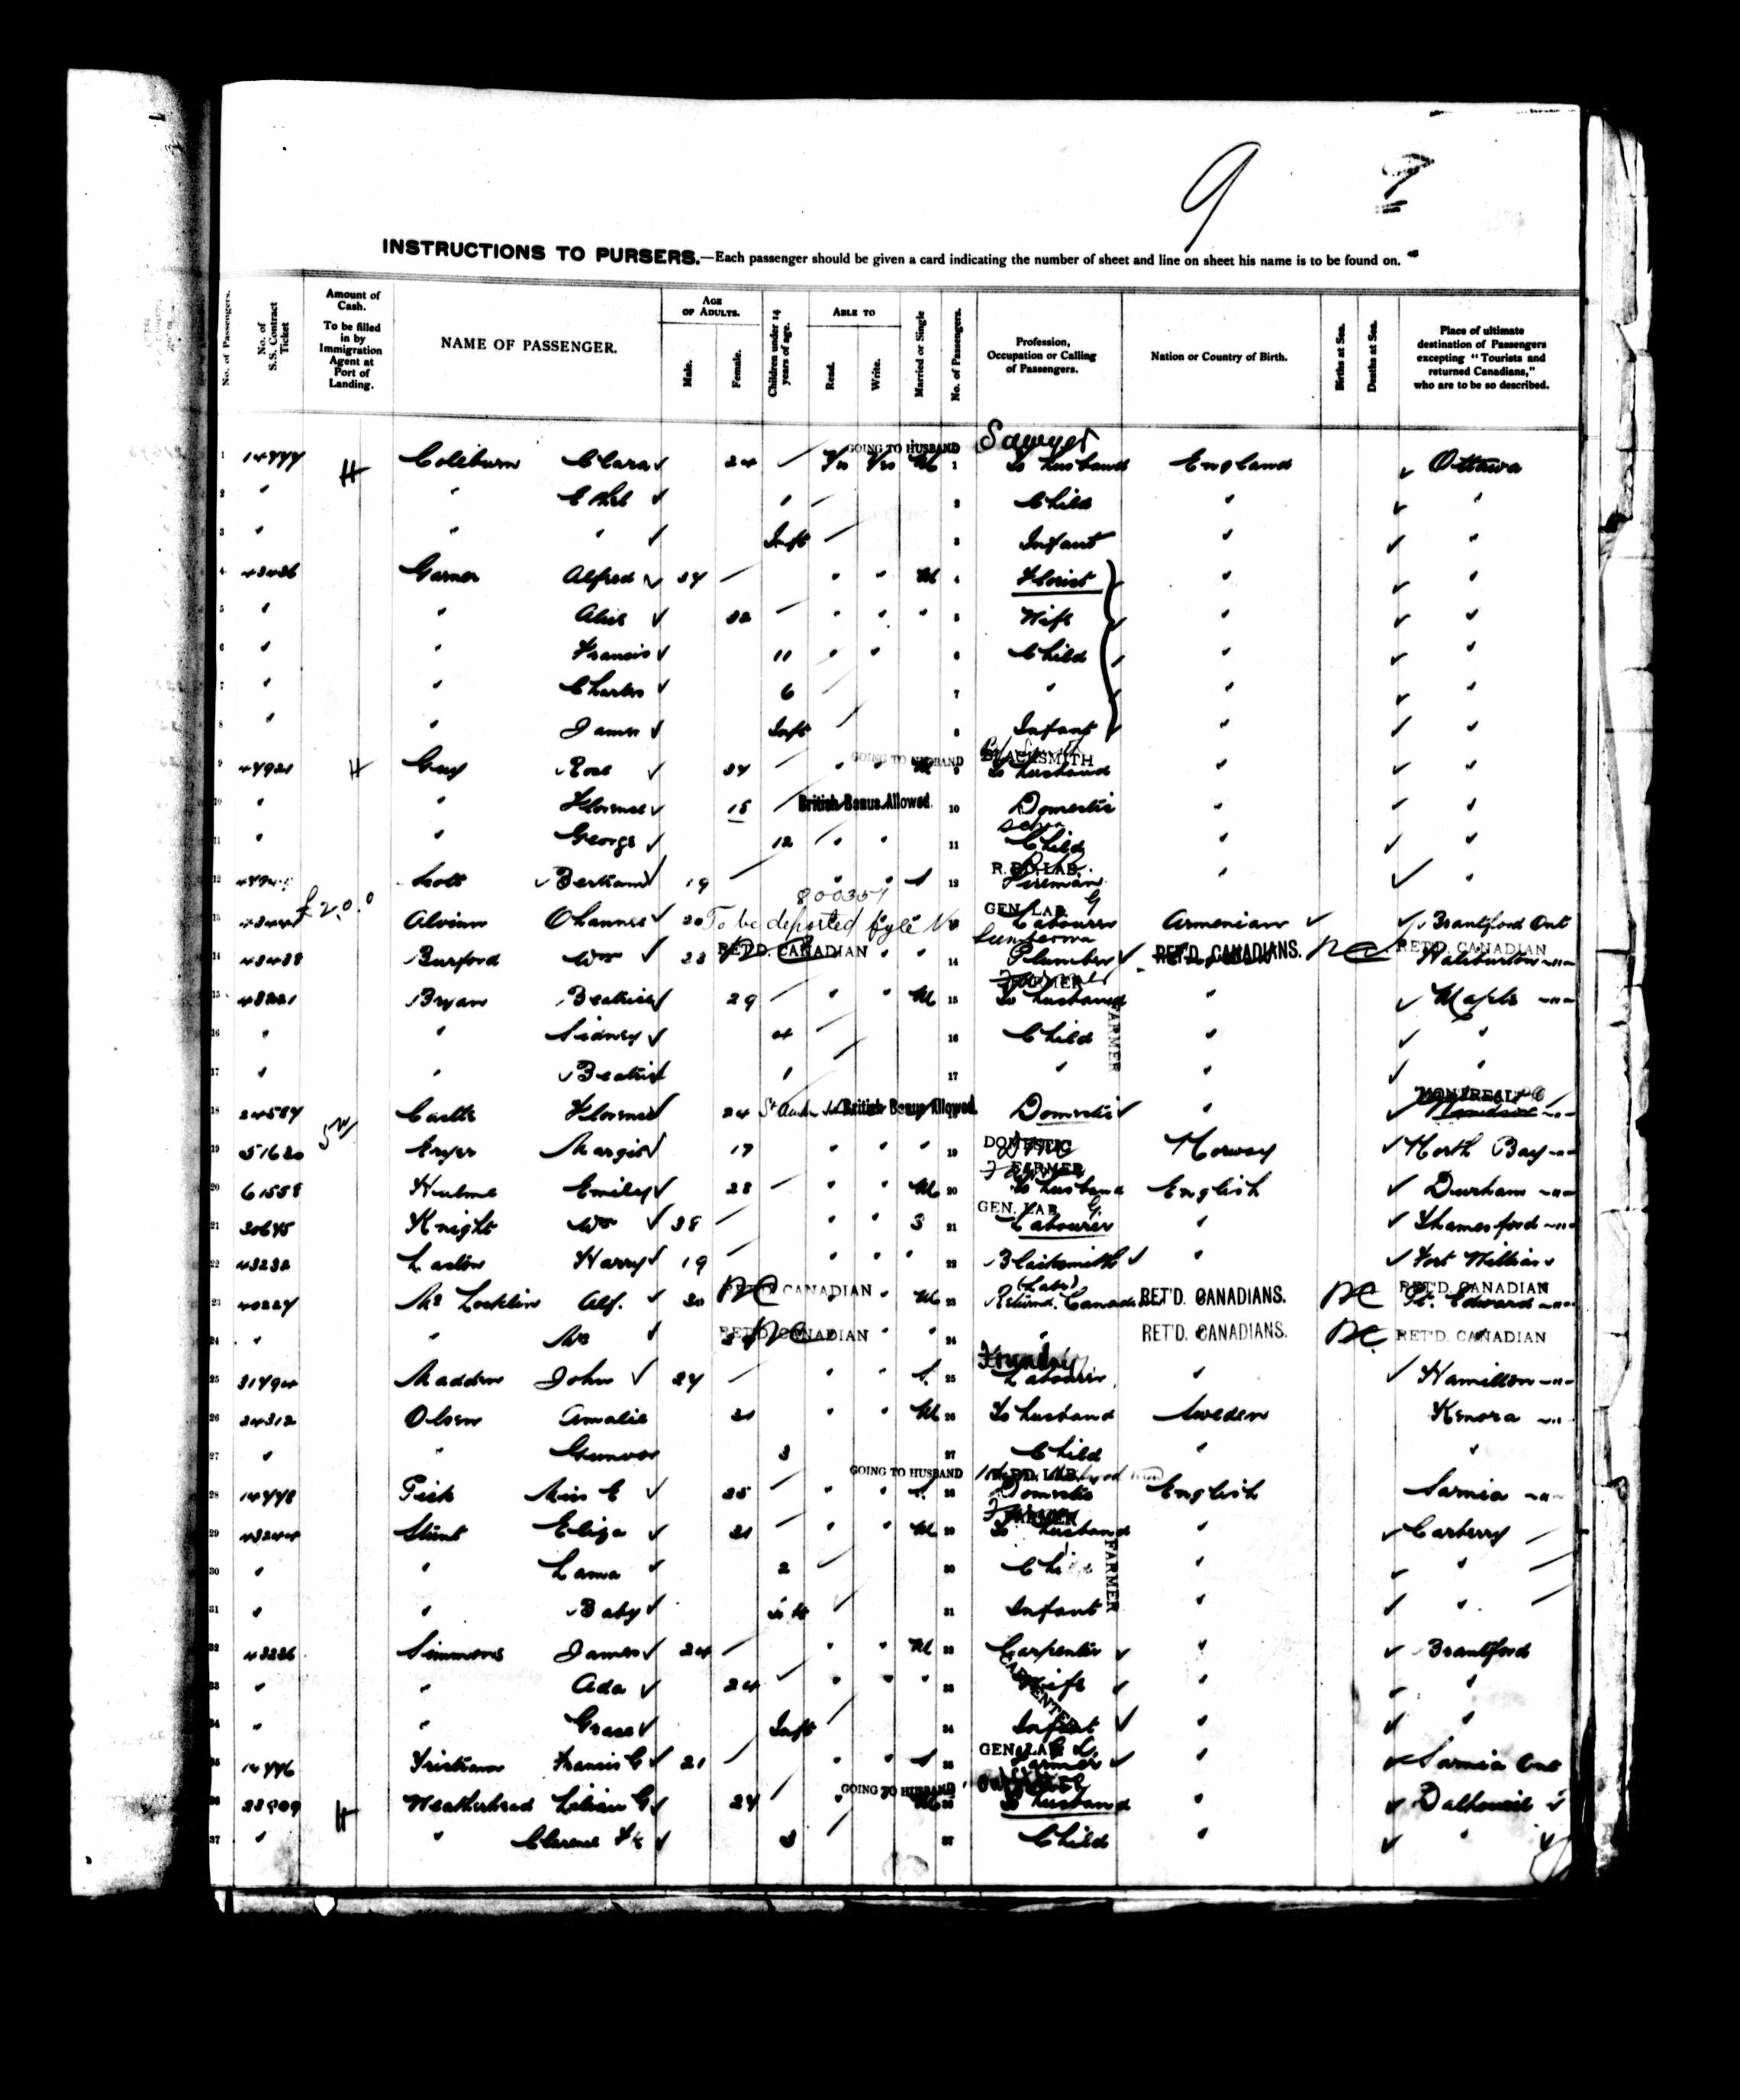 9 9
INSTRUCTIONS TO PURSERS.—Each passenger should be given a card indicating the number of sheet and line on sheet his name is to be found on.
No. of Passengers. No. of S.S. Contract Ticket Amount of Cash. To be filled in by Immigration Agent at Port of Landing. NAME OF PASSENGER. AGE OF ADULTS. Male. Female. Children under 14 years of age. ABLE TO Read. Write. Married or Single No. of Passengers. Profession, Occupation or Calling of Passengers. Nation or Country of Birth. Births at Sea. Deaths at Sea. Place of ultimate destination of Passengers excepting "Tourists and returned Canadians," who are to be so described.
GOING TO HUSBAND Sawyer
1 H Coleburn Clara 24 Yes Yes M 1 To husband England Ottawa
2 " " Ethel 1 2 Child " "
3 " " " Inft 3 Infant " "
4 43436 Garner Alfred 34 " " M 4 Florist " "
5 " " Alice 32 " " " 5 Wife " "
6 " " Francis 11 " " 6 Child " "
7 " " Charles 6 7 " " "
8 " " James Inft 8 Infant " "
GOING TO HUSBAND BLACKSMITH
9 H Guy Rose 34 " " M 9 To husband " "
10 " " Florence 18 British Bonus Allowed. 10 Domestic " "
11 " " George 12 " " 11 Child " "
R. RD. LAB.
12 Scott Bertram 19 " " S 12 Fireman " "
800351
GEN. LAB. G
13 £2.0.0 Alvian Ohannes 20 To be deported fyle No Labourer Armenian Brantford Ont
RET'D. CANADIAN RET'D. CANADIANS. RC RET'D. CANADIAN
14 43438 Burford Wm 23 " " 14 Plumber Haliburton "
FARMER
15 48221 Bryan Beatrice 29 " " M 15 To husband " Maple "
16 " " Sidney 4 16 Child " "
FARMER
17 " " Beatrice 1 17 " " "
MONTREAL PQ
18 24584 Castle Florence 24 British Bonus Allowed. Domestic "
DOMESTIC
19 51620 Margit 17 " " " 19 Norway North Bay "
FARMER
20 61558 Hulme Emily 28 " " M 20 To husband English Durham "
GEN. LAB G.
21 30645 Knight Wm 38 " " S 21 Labourer " Thamesford "
22 43232 Harry 19 " " " 22 Blacksmith " Fort William
RET'D. CANADIAN RET'D. CANADIANS. RC RET'D. CANADIAN
23 40224 Mc Locklin Alf. 30 " " M 23 Returnd. Canadian Pt. Edward "
24 " " Mrs RET'D. CANADIAN " " 24 " RET'D. CANADIANS. RC RET'D. CANADIAN
Foundry
25 31494 Madden John 24 " " S. 25 Labourer " Hamilton "
26 34312 Olsen Amalie 31 " " M 26 To husband Sweden Kenora "
27 " " Gunvor 3 27 Child " "
GOING TO HUSBAND RD. LAB.
28 14448 Miss E 25 " " S. 28 Domestic English Sarnia "
FARMER
29 43244 Stint Eliza 31 " " M 29 To husband " Carberry
30 " " 2 30 Child " "
FARMER
31 " " Baby 31 Infant " "
32 43236 Simmons James 24 " " M 32 Carpenter " Brantford
CARPENTER
33 " " Ada 24 " " " 33 Wife " "
34 " " Grace Inft 34 Infant " "
GEN. LAB
35 14446 Tristram Francis G 21 " " S 35 Farmer " Sarnia Ont
GOING TO HUSBAND
36 22909 H Weatherhead Lilian G. 24 " M 36 To husband " Dalhousie
37 " " Clarence 3 37 Child " "